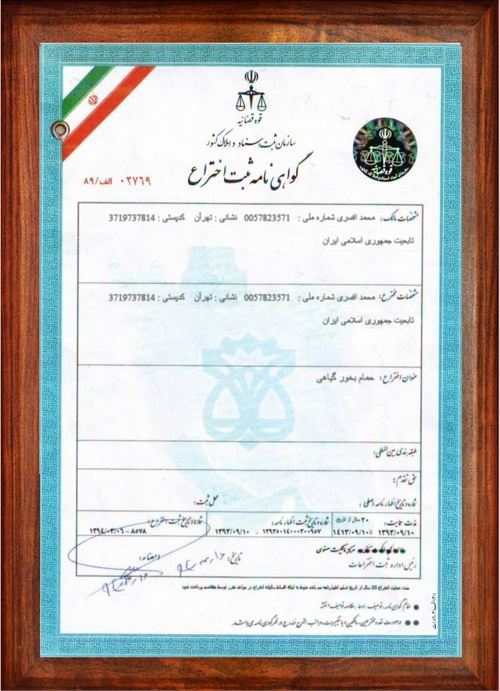 قوه قضائیه
سازمان ثبت اسناد و املاک کشور
گواهی نامه ثبت اختراع
۰۲۷۶۹ الف/۸۹
مشخصات مالک: محمد افسری شماره ملی : 0057823571 نشانی : تهران کدپستی : 3719737814
تابعیت جمهوری اسلامی ایران
مشخصات مخترع: محمد افسری شماره ملی : 0057823571 نشانی : تهران کدپستی : 3719737814
تابعیت جمهوری اسلامی ایران
عنوان اختراع: حمام بخور گیاهی
طبقه بندی بین المللی:
حق تقدم:
شماره و تاریخ اظهار نامه اصلی: محل ثبت:
مدت حمایت: ۲۰ سال از تاریخ شماره و تاریخ ثبت اظهارنامه: شماره و تاریخ ثبت اختراع:
۱۳۹۳/۰۹/۱۰ تا ۱۴۱۳/۰۹/۱۰ ۱۳۹۳/۰۹/۱۰ ۸۵۷۸ - ۱۳۹۴/۰۳/۰۶
مرکز مالکیت معنوی
رئیس اداره ثبت اختراعات تاریخ: امضاء: